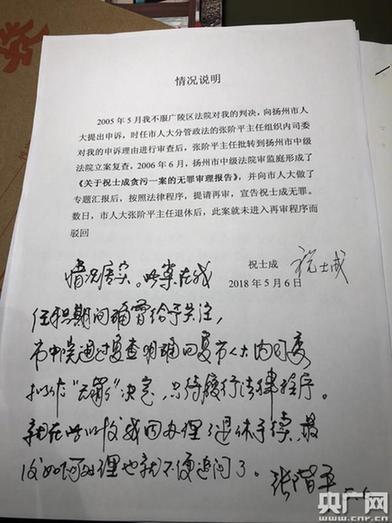 情况说明
2005年5月我不服广陵区法院对我的判决，向扬州市人
大提出申诉，时任市人大分管政法的张阶平主任组织内司委
对我的申诉理由进行审查后，张阶平主任批转到扬州市中级
法院立案复查。2006年6月，扬州市中级法院审监庭形成了
《关于祝士成贪污一案的无罪审理报告》，并向市人大做了
专题汇报后，按照法律程序，提请再审，宣告祝士成无罪。
数日，市人大张阶平主任退休后，此案就未进入再审程序而
驳回
祝士成 祝士成
2018年5月6日
情况属实。此案在我
任职期间确曾给予关注，
市中院通过复查明确回复市人大内司委
拟作"无罪"决定，只待履行法律程序。
在此以后我因办理退休手续，最
后如何处理也就不便追问了。
张阶平
5.6
央广网
www.cnr.cn